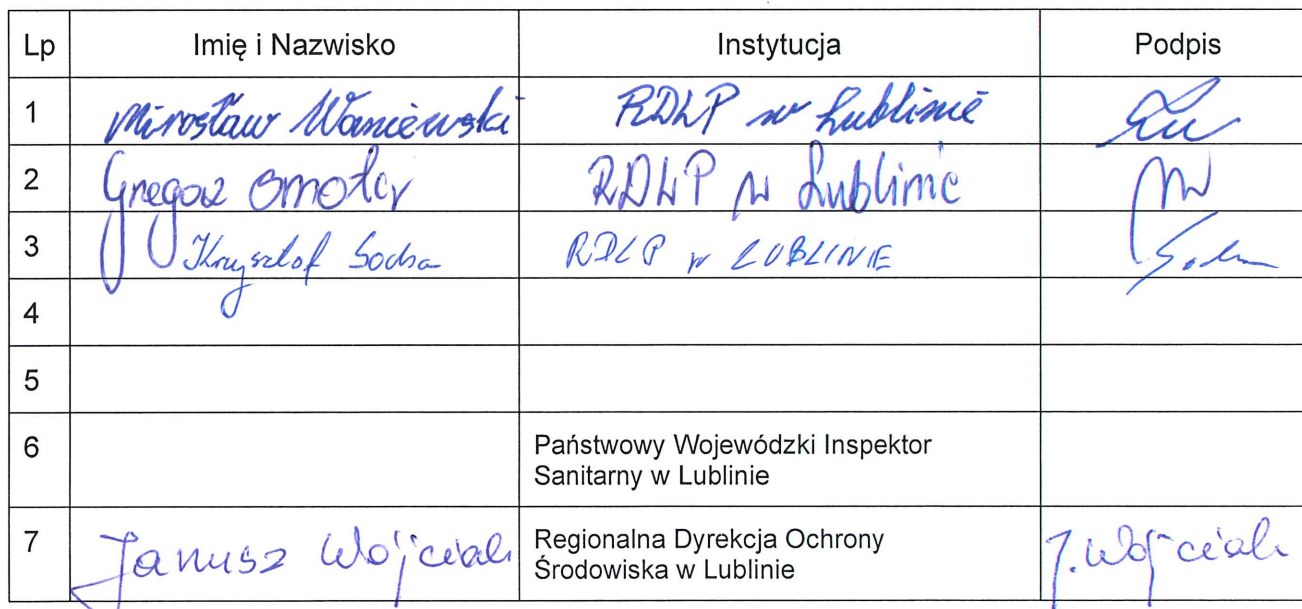 Lp Imię i Nazwisko Instytucja Podpis
1 Mirosław Waniewski RDLP w Lublinie
2 RDLP w Lublinie
3 Krzysztof Socha RDLP w LUBLINIE Socha
4
5
6 Państwowy Wojewódzki Inspektor
Sanitarny w Lublinie
7 Janusz Wójciak Regionalna Dyrekcja Ochrony J. Wójciak
Środowiska w Lublinie